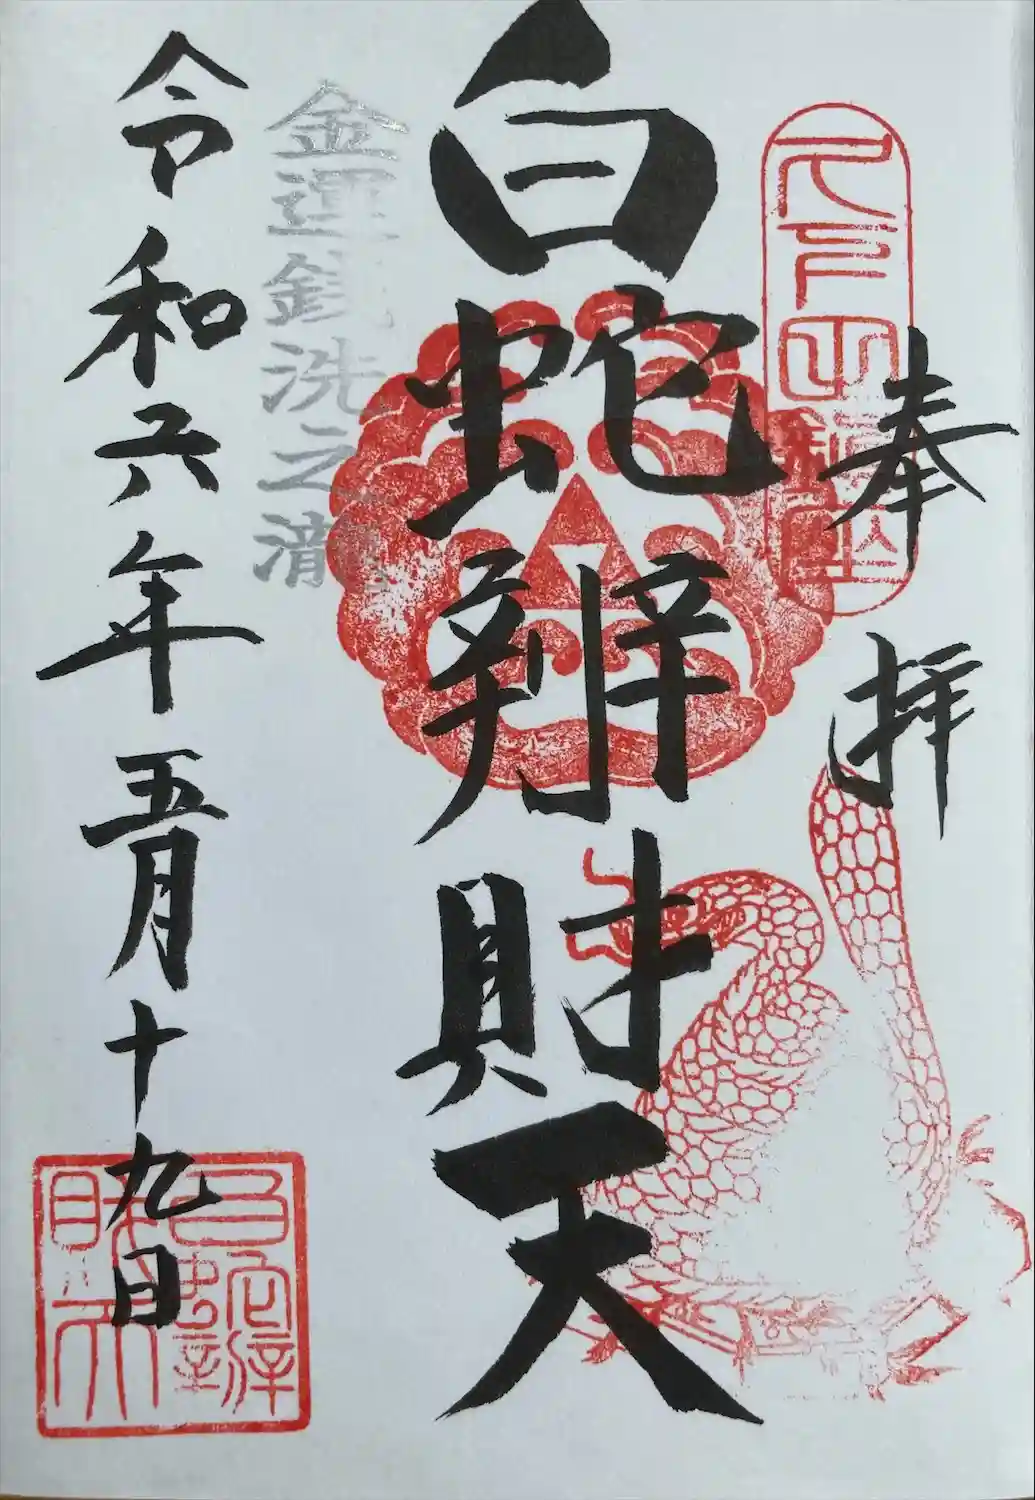 奉拝
白蛇辨財天
金運銭洗之瀧
令和六年五月十九日
白蛇辨財天